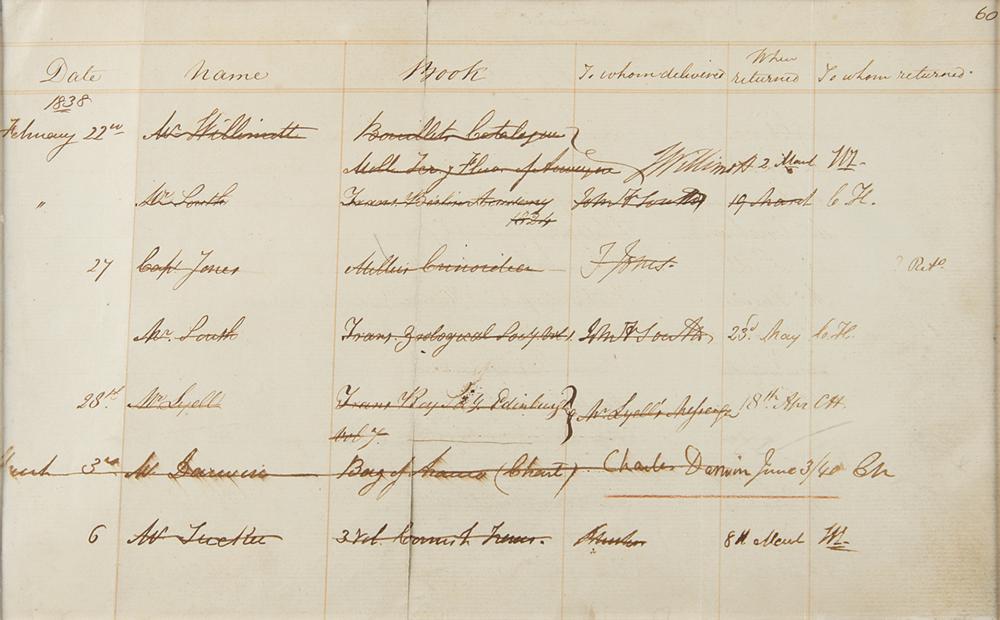 60
Date Name Book To whom delivered When returned To whom returned.
1838
February 22nd Mr Willimott Bouillet Catalogue
J Willimott 2 March
" Mr South Trans.
1824 John F South 19 March C H.
27 Capt Jones Millers Crinoidea T Jones. Retd
Mr South Trans. Zoological Socy John F South 23d May C. H.
28th Mr Lyell Trans Roy Socy Edinburgh Mr Lyell's Messenger 18th Apr CH
vol 7
3rd Mr Darwin Bay of (Chart) Charles Darwin June 3/40 CH
6 Mr Tucker 3 vol. Cornish Trans. 8th March